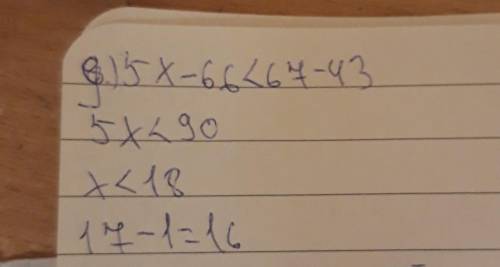 g) 5x-66<67-43
5x<90
x<18
17-1=16